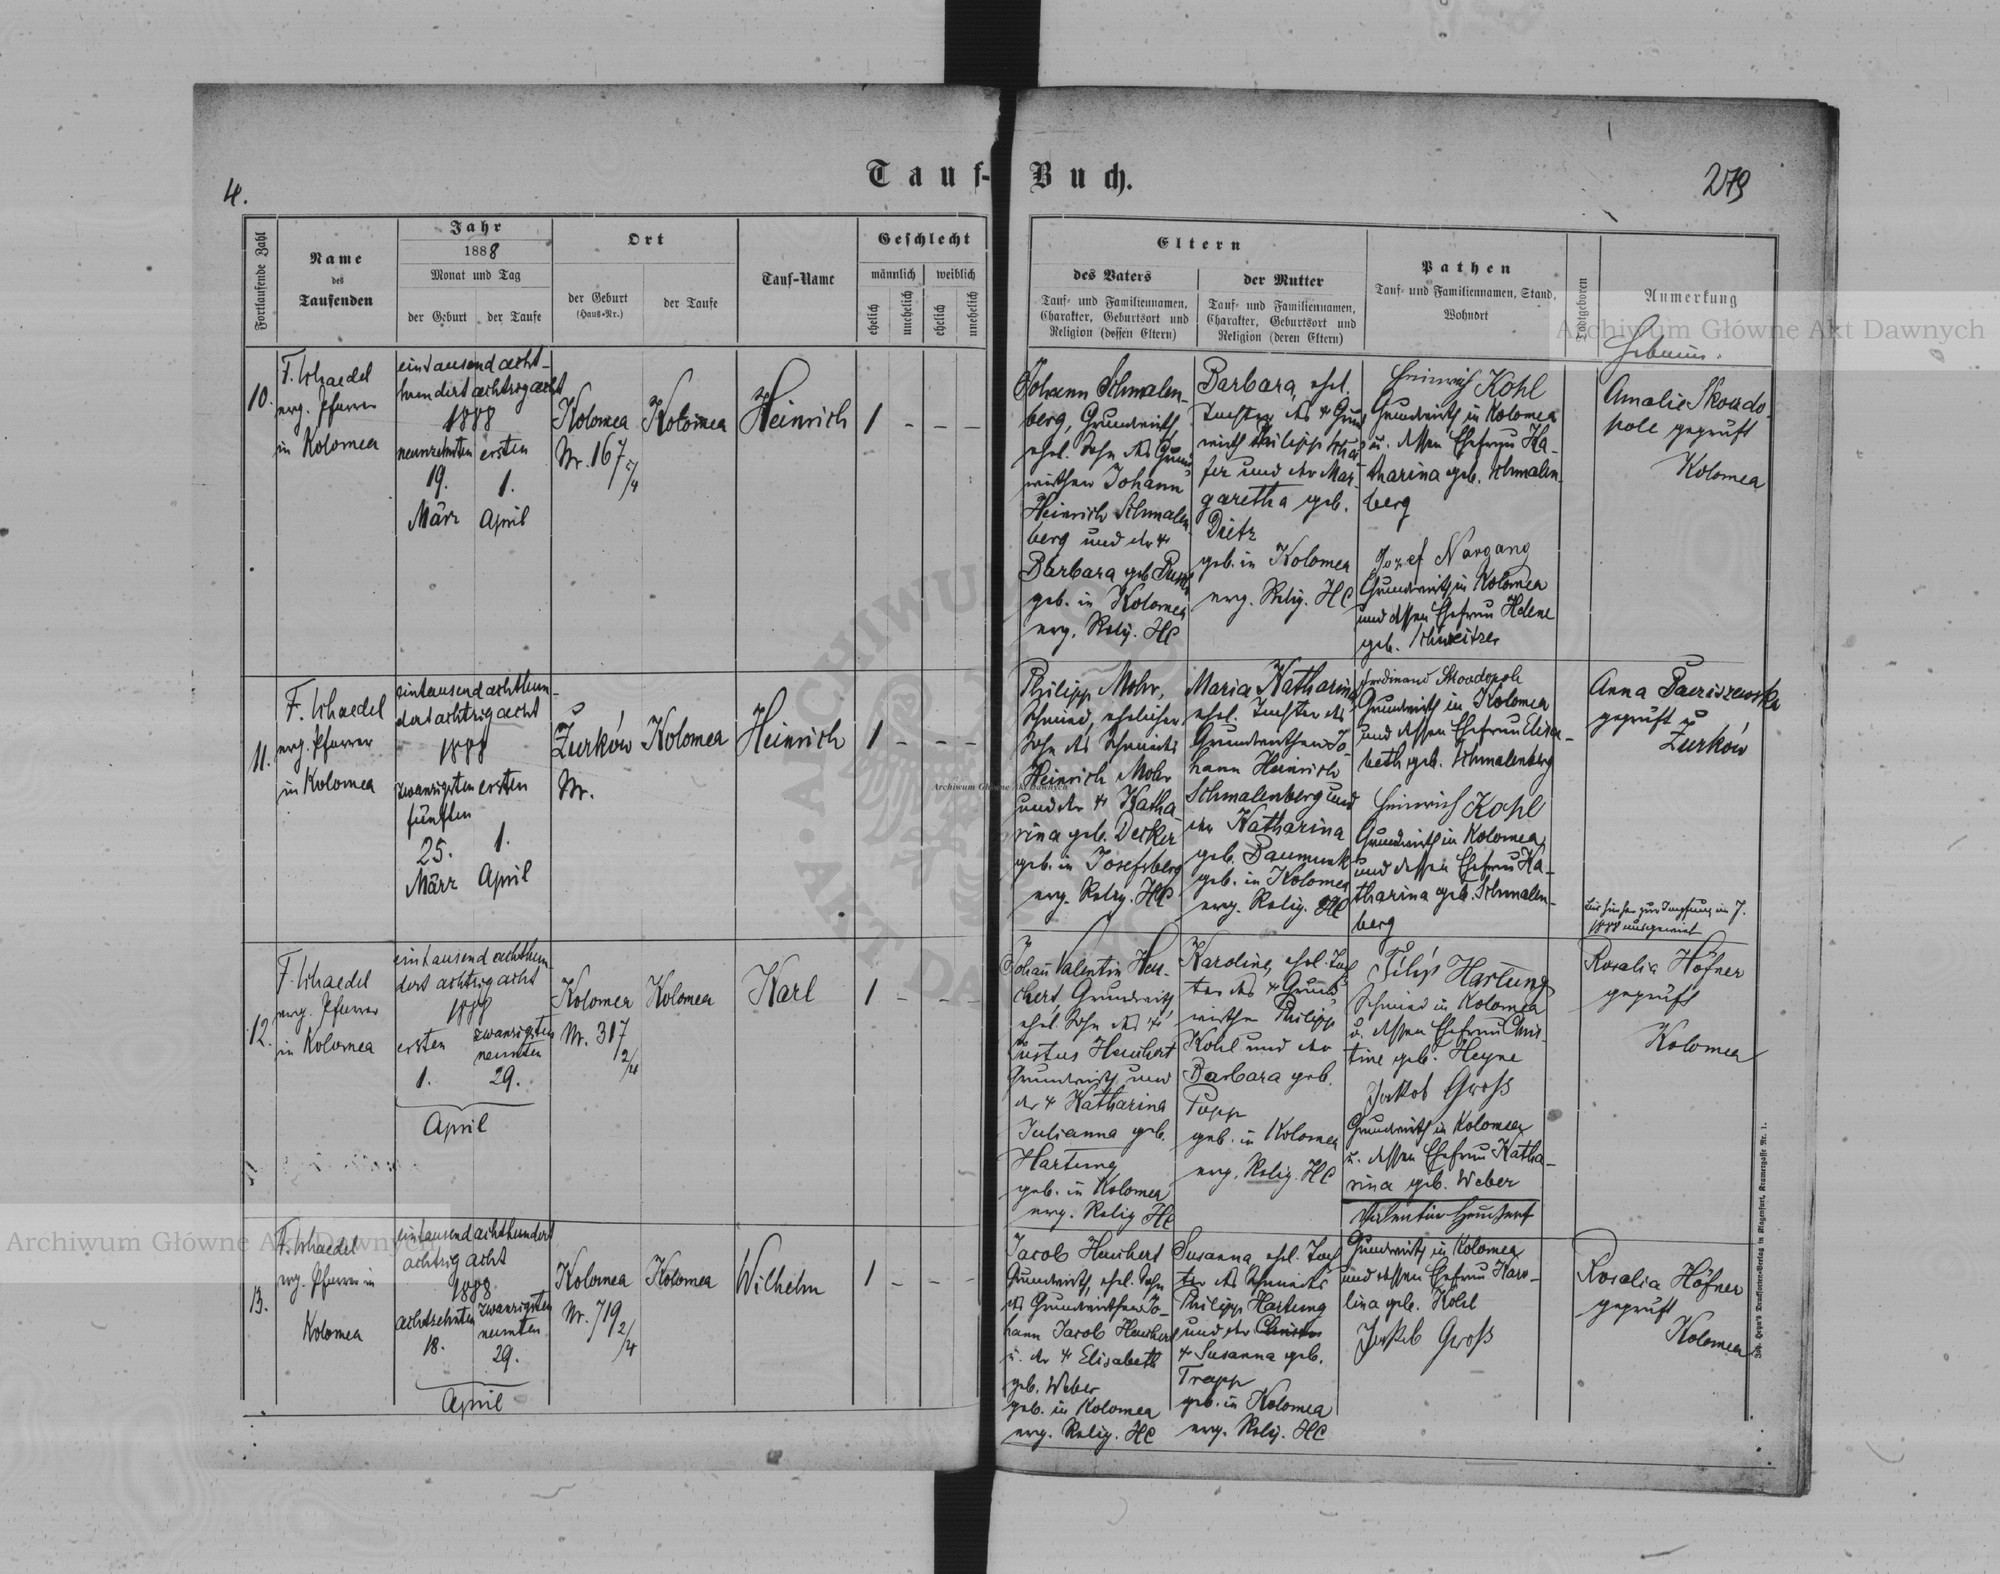 Tauf-Buch.
4.
279
Fortlaufende Zahl
Name
des
Taufenden
Jahr
1888
Monat und Tag
der Geburt
der Taufe
Ort
der Geburt
(Haus-Nr.)
der Taufe
Tauf-Name
Geschlecht
männlich
weiblich
ehelich
unehelich
ehelich
unehelich
Eltern
des Vaters
Tauf- und Familiennamen,
Charakter, Geburtsort und
Religion (dessen Eltern)
der Mutter
Tauf- und Familiennamen,
Charakter, Geburtsort und
Religion (deren Eltern)
Pathen
Tauf- und Familiennamen, Stand,
Wohnort
Todtgeboren
Anmerkung
10.
F. Schaedel
evg. Pfarrer
in Kolomea
eintausend acht-
hundert achtzig acht
1888
neunzehnten
19.
März
ersten
1.
April
Kolomea
Nr. 167
Kolomea
Heinrich
1 - - -
Johann Schmalen-
berg, Grundwirth,
ehel. Sohn des Grund
wirthen Johann
Heinrich Schmalen
berg und der +
Barbara geb.
geb. in Kolomea
evg. Relig. HC
Barbara, ehel.
Tochter des + Grund
wirth Philipp Schä-
fer und der Mar-
garetha geb.
Dietz
geb. in Kolomea
evg. Relig. HC
Heinrich Kohl
Grundwirth in Kolomea
u. dessen Ehefrau Ka-
tharina geb. Schmalen-
berg
Jozef Nargang
Grundwirth in Kolomea
und dessen Ehefrau Helene
geb. Schweitzer
Amalie Skoado-
pole geprüft
Kolomea
11.
F. Schaedel
evg. Pfarrer
in Kolomea
eintausend achthun-
dert achtzig acht
1888
zwanzigsten
fünften
25.
März
ersten
1.
April
Żurków
Nr.
Kolomea
Heinrich
1 - - -
Philipp Mohr,
Schmied, ehelicher
Sohn des Schmieds
Heinrich Mohr
und der + Katha-
rina geb. Decker
geb. in Josefsberg
evg. Relig. HC
Maria Katharina
ehel. Tochter des
Grundwirthen Jo-
hann Heinrich
Schmalenberg und
der Katharina
geb. Baumunk
geb. in Kolomea
evg. Relig. HC
Ferdinand Skoadopole
Grundwirth in Kolomea
und dessen Ehefrau Elisa-
beth geb. Schmalenberg
Heinrich Kohl
Grundwirth in Kolomea
und dessen Ehefrau Ka-
tharina geb. Schmalen-
berg
Anna
geprüft
Żurków
Bis hieher zur Impfung im J.
1888
12.
F. Schaedel
evg. Pfarrer
in Kolomea
eintausend achthun-
dert achtzig acht
1888
ersten
1.
zwanzigsten
neunten
29.
April
Kolomea
Nr. 317
2/4
Kolomea
Karl
1 - - -
Johan Valentin Heu-
chert Grundwirth
ehel. Sohn des +
Justus Heuchert
Grundwirth und
der + Katharina
Julianna geb.
Hartung
geb. in Kolomea
evg. Relig HC
Karoline, ehel. Toch
ter des + Grund
wirthen Philipp
Kohl und der
Barbara geb.
Popp
geb. in Kolomea
evg. Relig. HC
Filip Hartung
Schmied in Kolomea
u. dessen Ehefrau Chris-
tine geb. Heyne
Jakob Groß
Grundwirth in Kolomea
u. dessen Ehefrau Katha-
rina geb. Weber
Rosalia Höfner
geprüft
Kolomea
13.
F. Schaedel
evg. Pfarrer in
Kolomea
eintausend achthundert
achtzig acht
1888
achtzehnten
18.
zwanzigsten
neunten
29.
April
Kolomea
Nr. 719
2/4
Kolomea
Wilhelm
1 - - -
Jacob Heuchert
Grundwirth, ehel. Sohn
des Grundwirthen Jo-
hann Jacob Heuchert
u. der + Elisabeth
geb. Weber
geb. in Kolomea
evg. Relig. HC
Susanna, ehel. Toch
ter des Schmieds
Philipp Hartung
und der
+ Susanna geb.
Trapp
geb. in Kolomea
evg. Relig. HC
Valentin Heuchert
Grundwirth in Kolomea
und dessen Ehefrau Karo-
lina geb. Kohl
Jakob Groß
Rosalia Höfner
geprüft
Kolomea
Joh. Heyn's Drucksorten-Verlag in Klagenfurt, Kramergasse Nr. 1.
Archiwum Główne Akt Dawnych
Archiwum Główne Akt Dawnych
Archiwum Główne Akt Dawnych